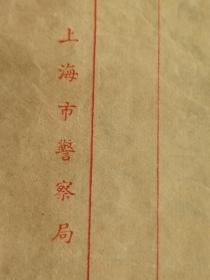 上海市警察局